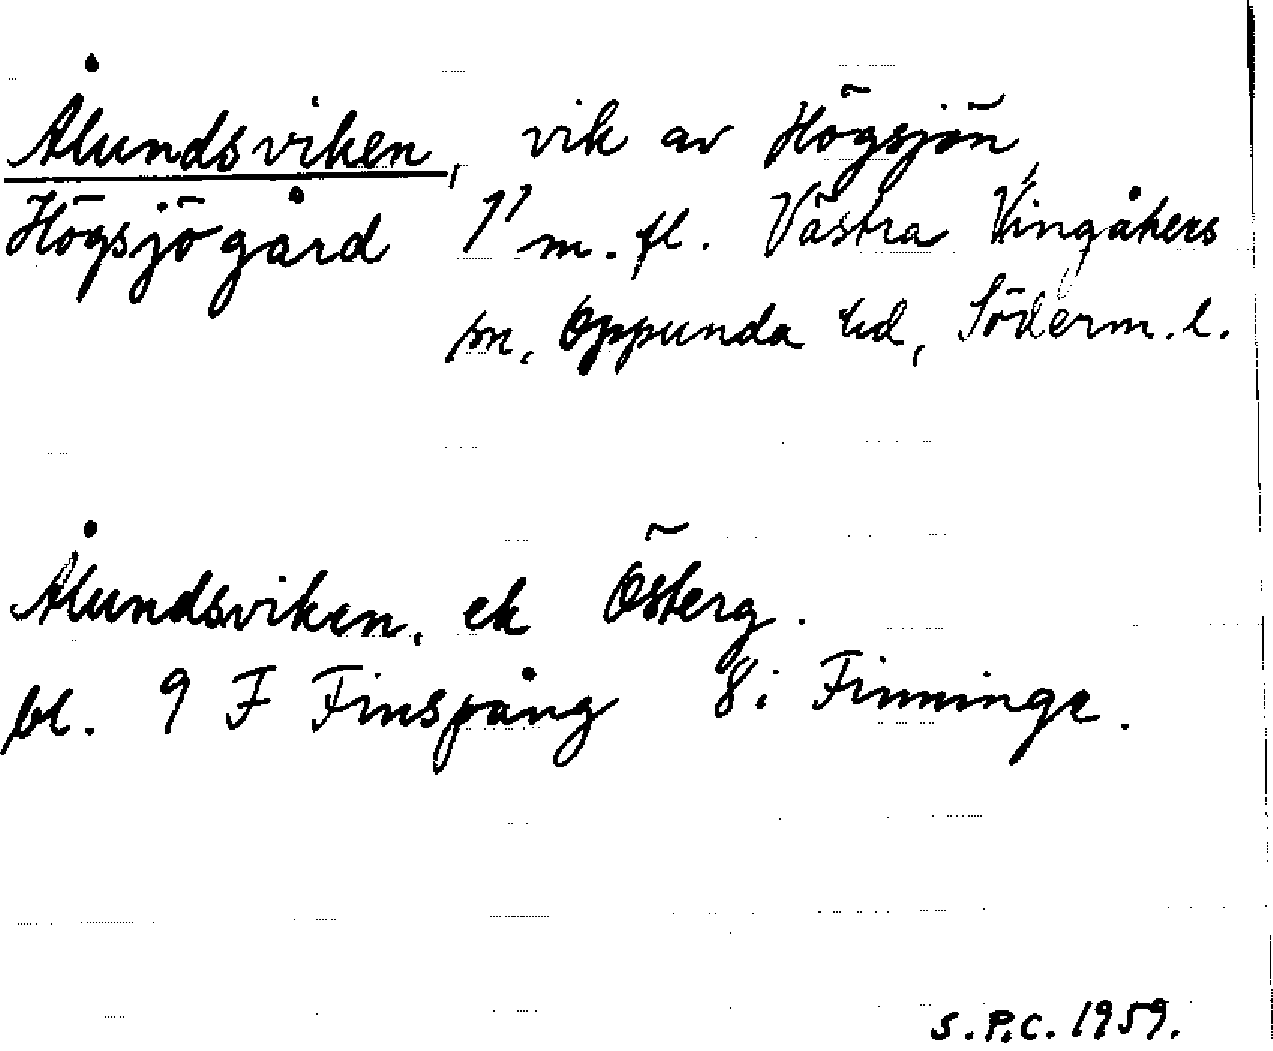 Ålundsviken, vik av Högsjön,
Högsjö gård 1⁹ m.fl. Västra Vingåkers
sn, Oppunda hd, Söderm. l.
Ålundsviken, ek Österg.
bl. 9 F Finspång 8 i Finninge.
S.P.C. 1959.